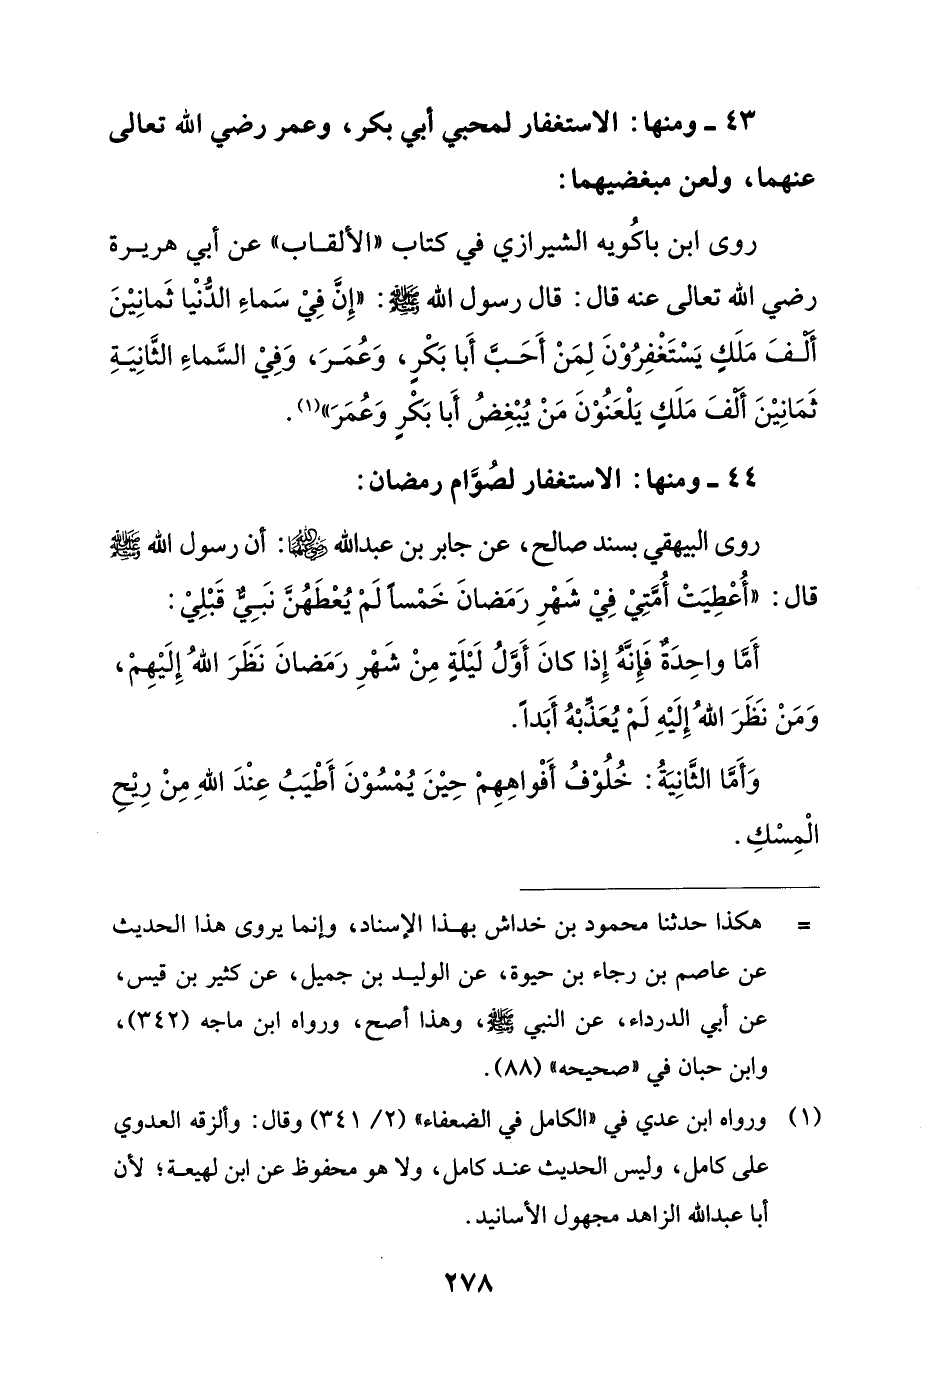 ٤٣ ـ ومنها: الاستغفار لمحبي أبي بكر، وعمر رضي الله تعالى
عنهما، ولعن مبغضيهما:
روى ابن باكُويه الشيرازي في كتاب «الألقـاب» عن أبي هريـرة
رضي الله تعالى عنه قال: قال رسول الله ﷺ: «إِنَّ فِيْ سَماءِ الدُّنْيا ثَمانِيْنَ
أَلْـفَ مَلَكٍ يَسْتَغْفِرُوْنَ لِمَنْ أَحَـبَّ أَبا بَكْرٍ، وَعُمَـرَ، وَفِيْ السَّماءِ الثَّانِيَـةِ
ثَمَانِيْنَ أَلْفَ مَلَكٍ يَلْعَنُوْنَ مَنْ يُبْغِضُ أَبا بَكْرٍ وَعُمَرَ»(١).
٤٤ ـ ومنها: الاستغفار لصُوَّام رمضان:
روى البيهقي بسند صالح، عن جابر بن عبدالله رضي الله عنهما: أن رسول الله ﷺ
قال: «أُعْطِيَتْ أُمَّتِيْ فِيْ شَهْرِ رَمَضانَ خَمْساً لَمْ يُعْطَهُنَّ نَبِـيٌّ قَبْلِيْ:
أَمَّا واحِدَةٌ فَإِنَّهُ إِذا كانَ أَوَّلُ لَيْلَةٍ مِنْ شَهْرِ رَمَضانَ نَظَرَ اللهُ إِلَيْهِمْ،
وَمَنْ نَظَرَ اللهُ إِلَيْهِ لَمْ يُعَذِّبْهُ أَبَداً.
وَأَمَّا الثَّانِيَةُ: خُلُوْفُ أَفْواهِهِمْ حِيْنَ يُمْسُوْنَ أَطْيَبُ عِنْدَ اللهِ مِنْ رِيْحِ
الْمِسْكِ.
= هكذا حدثنا محمود بن خداش بهـذا الإسناد، وإنما يروى هذا الحديث
عن عاصم بن رجاء بن حيوة، عن الوليـد بن جميل، عن كثير بن قيس،
عن أبي الدرداء، عن النبي ﷺ، وهذا أصح، ورواه ابن ماجه (٣٤٢)،
وابن حبان في «صحيحه» (٨٨).
(١) ورواه ابن عدي في «الكامل في الضعفاء» (٢/ ٣٤١) وقال: وألزقه العدوي
على كامل، وليس الحديث عنـد كامل، ولا هو محفوظ عن ابن لهيعـة؛ لأن
أبا عبدالله الزاهد مجهول الأسانيد.
٢٧٨